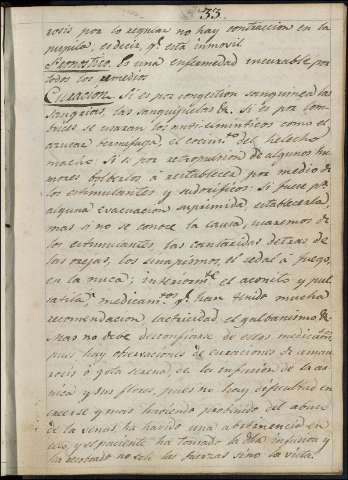 33.
rosis por lo regular no hay contraccion en la
pupila, es decir, qe. esta inmovil
Pronostico. Es una enfermedad incurable por
todos los remedios
Curacion. Si es por congestion sanguinea las
Sangrias, las sanguijuelas &a. Si es por lom-
brices se usaran los anti-eminticos como el
azucar bermifuga, el cocimto. del helecho
macho. Si es por retropulsion de algunos hu-
mores bolberlos á restablecer por medio de
los estimulantes y sudorificos. Si fuese pr.
alguna evacuacion suprimida establecerla,
mas si no se conoce la causa, usaremos de
los estimulantes las cantaridas detras de
las orejas, los sinapismos, el sedal á fuego,
en la nuca; interiormte. el aconito y pul-
satila; medicamtos. qe. han tenido mucha
recomendacion, lactricidad, el galbanismo &a.
Mas no debe desconfiarse de estos medicamtos.
pues hay observaciones de curaciones de amau-
rosis ó gota serena, de la infusion de la ar-
nica y sus flores, pues no hay dificultad en
hacerse y mas habiendo probenido del abuso
de la venus, ha habido una abstinencia en
ello, y el paciente ha tomado la dha infusion y
ha recobrado no solo las fuerzas sino la vista.